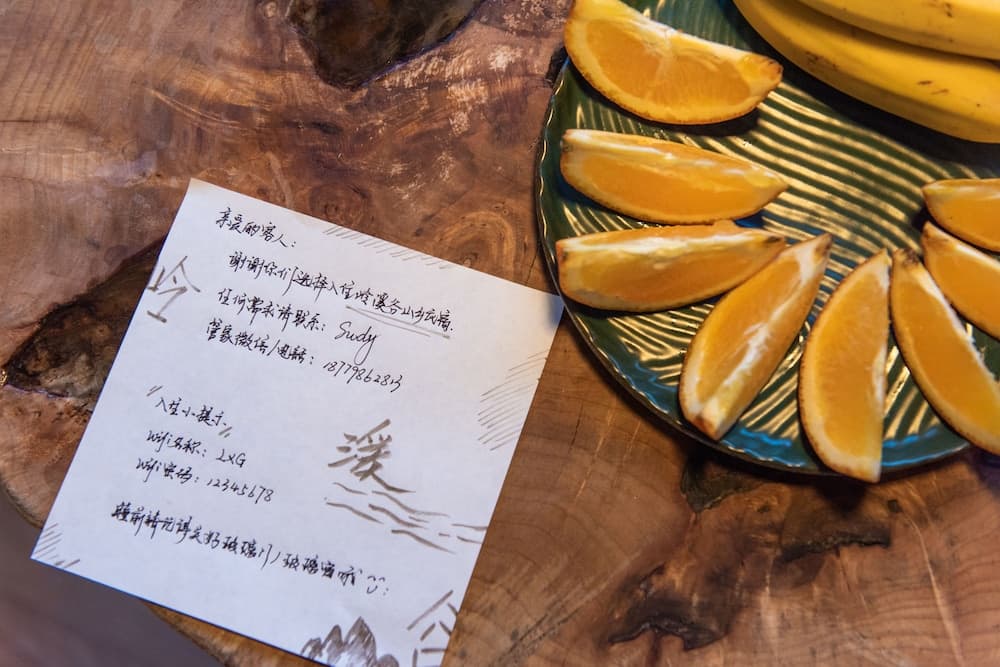 亲爱的客人：
谢谢你们选择入住吟溪谷山乡民宿.
任何需求请联系：Sudy
管家微信/电话：18779862813
"入住小提示"
wifi名称：LXG
wifi密码：12345678
睡前请记得关好玻璃门/玻璃窗哦
吟
溪
谷